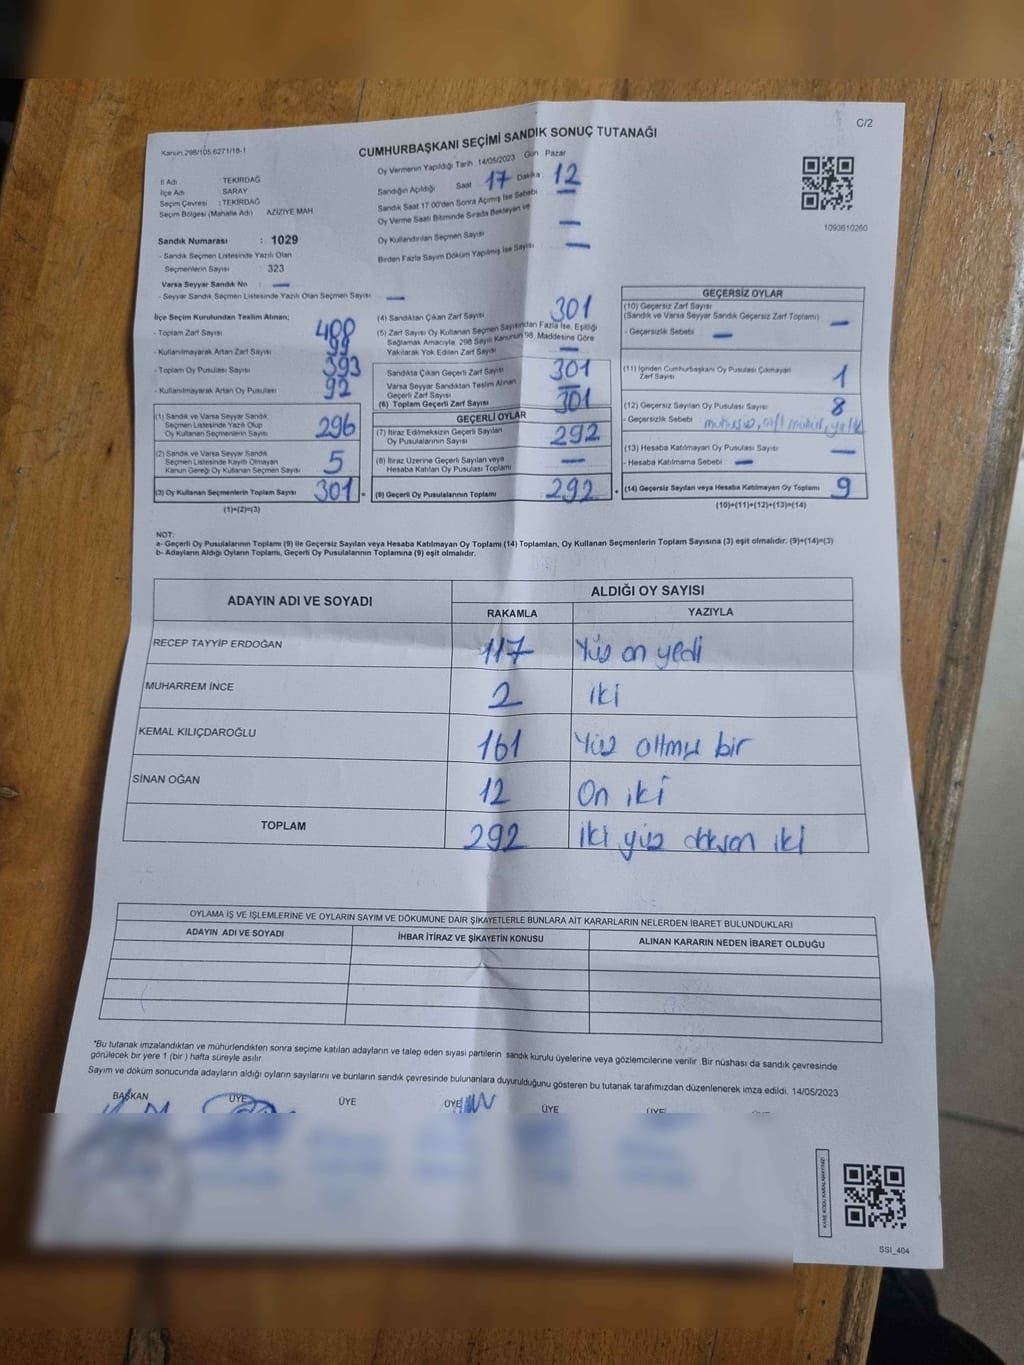 C/2
Kanun:298/105,6271/18-1
CUMHURBAŞKANI SEÇİMİ SANDIK SONUÇ TUTANAĞI
İl Adı : TEKİRDAĞ
İlçe Adı : SARAY
Seçim Çevresi : TEKİRDAĞ
Seçim Bölgesi (Mahalle Adı) AZİZİYE MAH
Oy Vermenin Yapıldığı Tarih : 14/05/2023 Gün Pazar
Sandığın Açıldığı Saat 17 Dakika 12
Sandık Saat 17:00'den Sonra Açılmış İse Sebebi —
Oy Verme Saati Bitiminde Sırada Bekleyen ve
Oy Kullandırılan Seçmen Sayısı —
Birden Fazla Sayım Döküm Yapılmış İse Sayısı —
1093610260
Sandık Numarası : 1029
- Sandık Seçmen Listesinde Yazılı Olan
Seçmenlerin Sayısı 323
Varsa Seyyar Sandık No : —
- Seyyar Sandık Seçmen Listesinde Yazılı Olan Seçmen Sayısı : —
İlçe Seçim Kurulundan Teslim Alınan;
- Toplam Zarf Sayısı
- Kullanılmayarak Artan Zarf Sayısı 99
- Toplam Oy Pusulası Sayısı 393
- Kullanılmayarak Artan Oy Pusulası 92
(1) Sandık ve Varsa Seyyar Sandık
Seçmen Listesinde Yazılı Olup
Oy Kullanan Seçmenlerin Sayısı 296
(2) Sandık ve Varsa Seyyar Sandık
Seçmen Listesinde Kayıtlı Olmayan
Kanun Gereği Oy Kullanan Seçmen Sayısı 5
(3) Oy Kullanan Seçmenlerin Toplam Sayısı 301 =
(1)+(2)=(3)
(4) Sandıktan Çıkan Zarf Sayısı 301
(5) Zarf Sayısı Oy Kullanan Seçmen Sayısından Fazla İse, Eşitliği
Sağlamak Amacıyla, 298 Sayılı Kanunun 98. Maddesine Göre
Yakılarak Yok Edilen Zarf Sayısı —
Sandıkta Çıkan Geçerli Zarf Sayısı 301
Varsa Seyyar Sandıktan Teslim Alınan
Geçerli Zarf Sayısı —
(6) Toplam Geçerli Zarf Sayısı 301
GEÇERLİ OYLAR
(7) İtiraz Edilmeksizin Geçerli Sayılan
Oy Pusulalarının Sayısı 292
(8) İtiraz Üzerine Geçerli Sayılan veya
Hesaba Katılan Oy Pusulası Toplamı —
(9) Geçerli Oy Pusulalarının Toplamı 292 +
GEÇERSİZ OYLAR
(10) Geçersiz Zarf Sayısı
(Sandık ve Varsa Seyyar Sandık Geçersiz Zarf Toplamı) —
- Geçersizlik Sebebi —
(11) İçinden Cumhurbaşkanı Oy Pusulası Çıkmayan
Zarf Sayısı 1
(12) Geçersiz Sayılan Oy Pusulası Sayısı 8
- Geçersizlik Sebebi
(13) Hesaba Katılmayan Oy Pusulası Sayısı —
- Hesaba Katılmama Sebebi —
(14) Geçersiz Sayılan veya Hesaba Katılmayan Oy Toplamı 9
(10)+(11)+(12)+(13)=(14)
NOT:
a- Geçerli Oy Pusulalarının Toplamı (9) ile Geçersiz Sayılan veya Hesaba Katılmayan Oy Toplamı (14) Toplamları, Oy Kullanan Seçmenlerin Toplam Sayısına (3) eşit olmalıdır. (9)+(14)=(3)
b- Adayların Aldığı Oyların Toplamı, Geçerli Oy Pusulalarının Toplamına (9) eşit olmalıdır.
ADAYIN ADI VE SOYADI ALDIĞI OY SAYISI
RAKAMLA YAZIYLA
RECEP TAYYİP ERDOĞAN 117 Yüz on yedi
MUHARREM İNCE 2 iki
KEMAL KILIÇDAROĞLU 161 Yüz altmış bir
SİNAN OĞAN 12 On iki
TOPLAM 292 iki yüz doksan iki
OYLAMA İŞ VE İŞLEMLERİNE VE OYLARIN SAYIM VE DÖKÜMÜNE DAİR ŞİKAYETLERLE BUNLARA AİT KARARLARIN NELERDEN İBARET BULUNDUKLARI
ADAYIN ADI VE SOYADI İHBAR İTİRAZ VE ŞİKAYETİN KONUSU ALINAN KARARIN NEDEN İBARET OLDUĞU
*Bu tutanak imzalandıktan ve mühürlendikten sonra seçime katılan adayların ve talep eden siyasi partilerin sandık kurulu üyelerine veya gözlemcilerine verilir .Bir nüshası da sandık çevresinde
görülecek bir yere 1 (bir ) hafta süreyle asılır.
Sayım ve döküm sonucunda adayların aldığı oyların sayılarını ve bunların sandık çevresinde bulunanlara duyurulduğunu gösteren bu tutanak tarafımızdan düzenlenerek imza edildi. 14/05/2023
BAŞKAN ÜYE ÜYE ÜYE ÜYE ÜYE
KARE KODU KARALAMAYINIZ!
SSİ_404